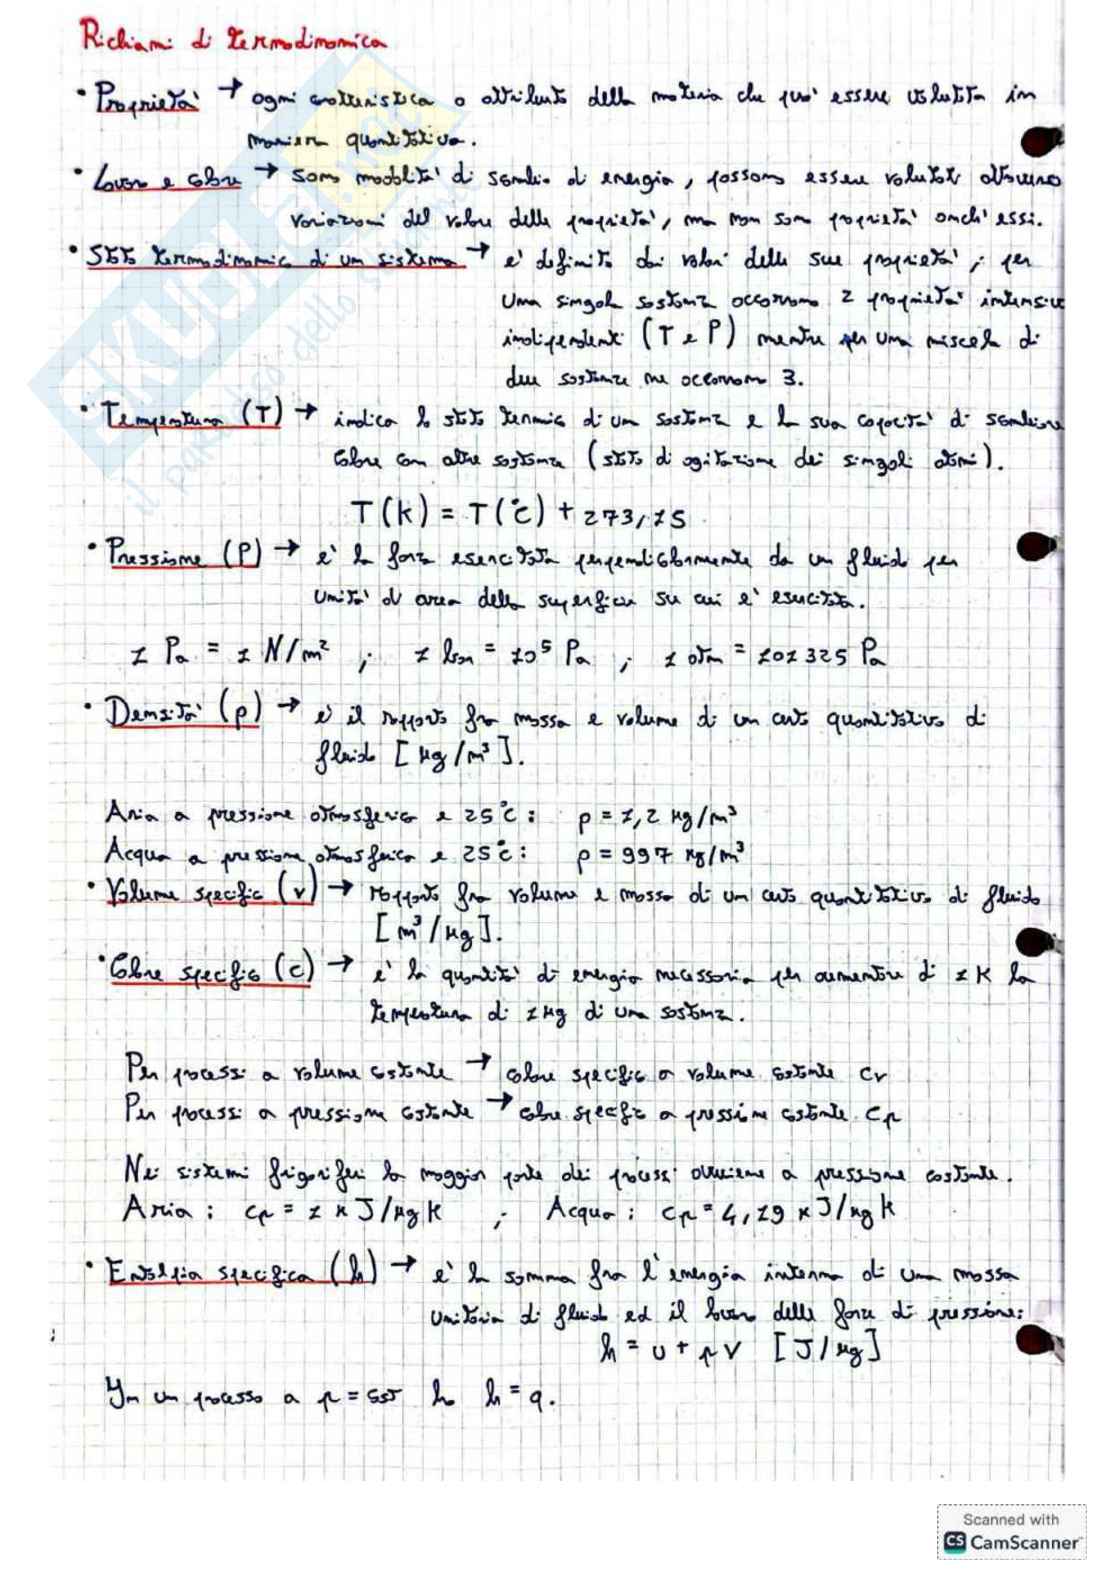 Richiami di termodinamica
• Proprietà → ogni caratteristica o attributo della materia che può essere valutata in
maniera quantitativa.
• Lavoro e calore → sono modalità di scambio di energia, possono essere valutati attraverso
variazioni del valore delle proprietà, ma non sono proprietà anch'essi.
• Stato termodinamico di un sistema → e' definito dai valori delle sue proprietà; per
una singola sostanza occorrono 2 proprietà intensive
indipendenti (T e P) mentre per una miscela di
due sostanze ne occorrono 3.
• Temperatura (T) → indica lo stato termico di un sostanza e la sua capacità di scambiare
calore con altre sostanze (stato di agitazione dei singoli atomi).
T(K) = T(°C) + 273,15
• Pressione (P) → e' la forza esercitata perpendicolarmente da un fluido per
unità di area della superficie su cui e' esercitata.
1 Pa = 1 N/m² ; 1 bar = 10⁵ Pa ; 1 atm = 101325 Pa
• Densità (ρ) → e' il rapporto fra massa e volume di un certo quantitativo di
fluido [kg/m³].
Aria a pressione atmosferica e 25°C : ρ = 1,2 kg/m³
Acqua a pressione atmosferica e 25°C : ρ = 997 kg/m³
• Volume specifico (v) → rapporto fra volume e massa di un certo quantitativo di fluido
[m³/kg].
• Calore specifico (c) → e' la quantità di energia necessaria per aumentare di 1 K la
temperatura di 1 kg di una sostanza.
Per processi a volume costante → calore specifico a volume costante cv
Per processi a pressione costante → calore specifico a pressione costante cp
Nei sistemi frigoriferi la maggior parte dei processi avviene a pressione costante.
Aria : cp = 1 kJ/kg K ; Acqua : cp = 4,19 kJ/kg K
• Entalpia specifica (h) → e' la somma fra l'energia interna di una massa
unitaria di fluido ed il lavoro delle forze di pressione:
h = u + pv [J/kg]
In un processo a p = cost ho h = q.
Scanned with
CS CamScanner